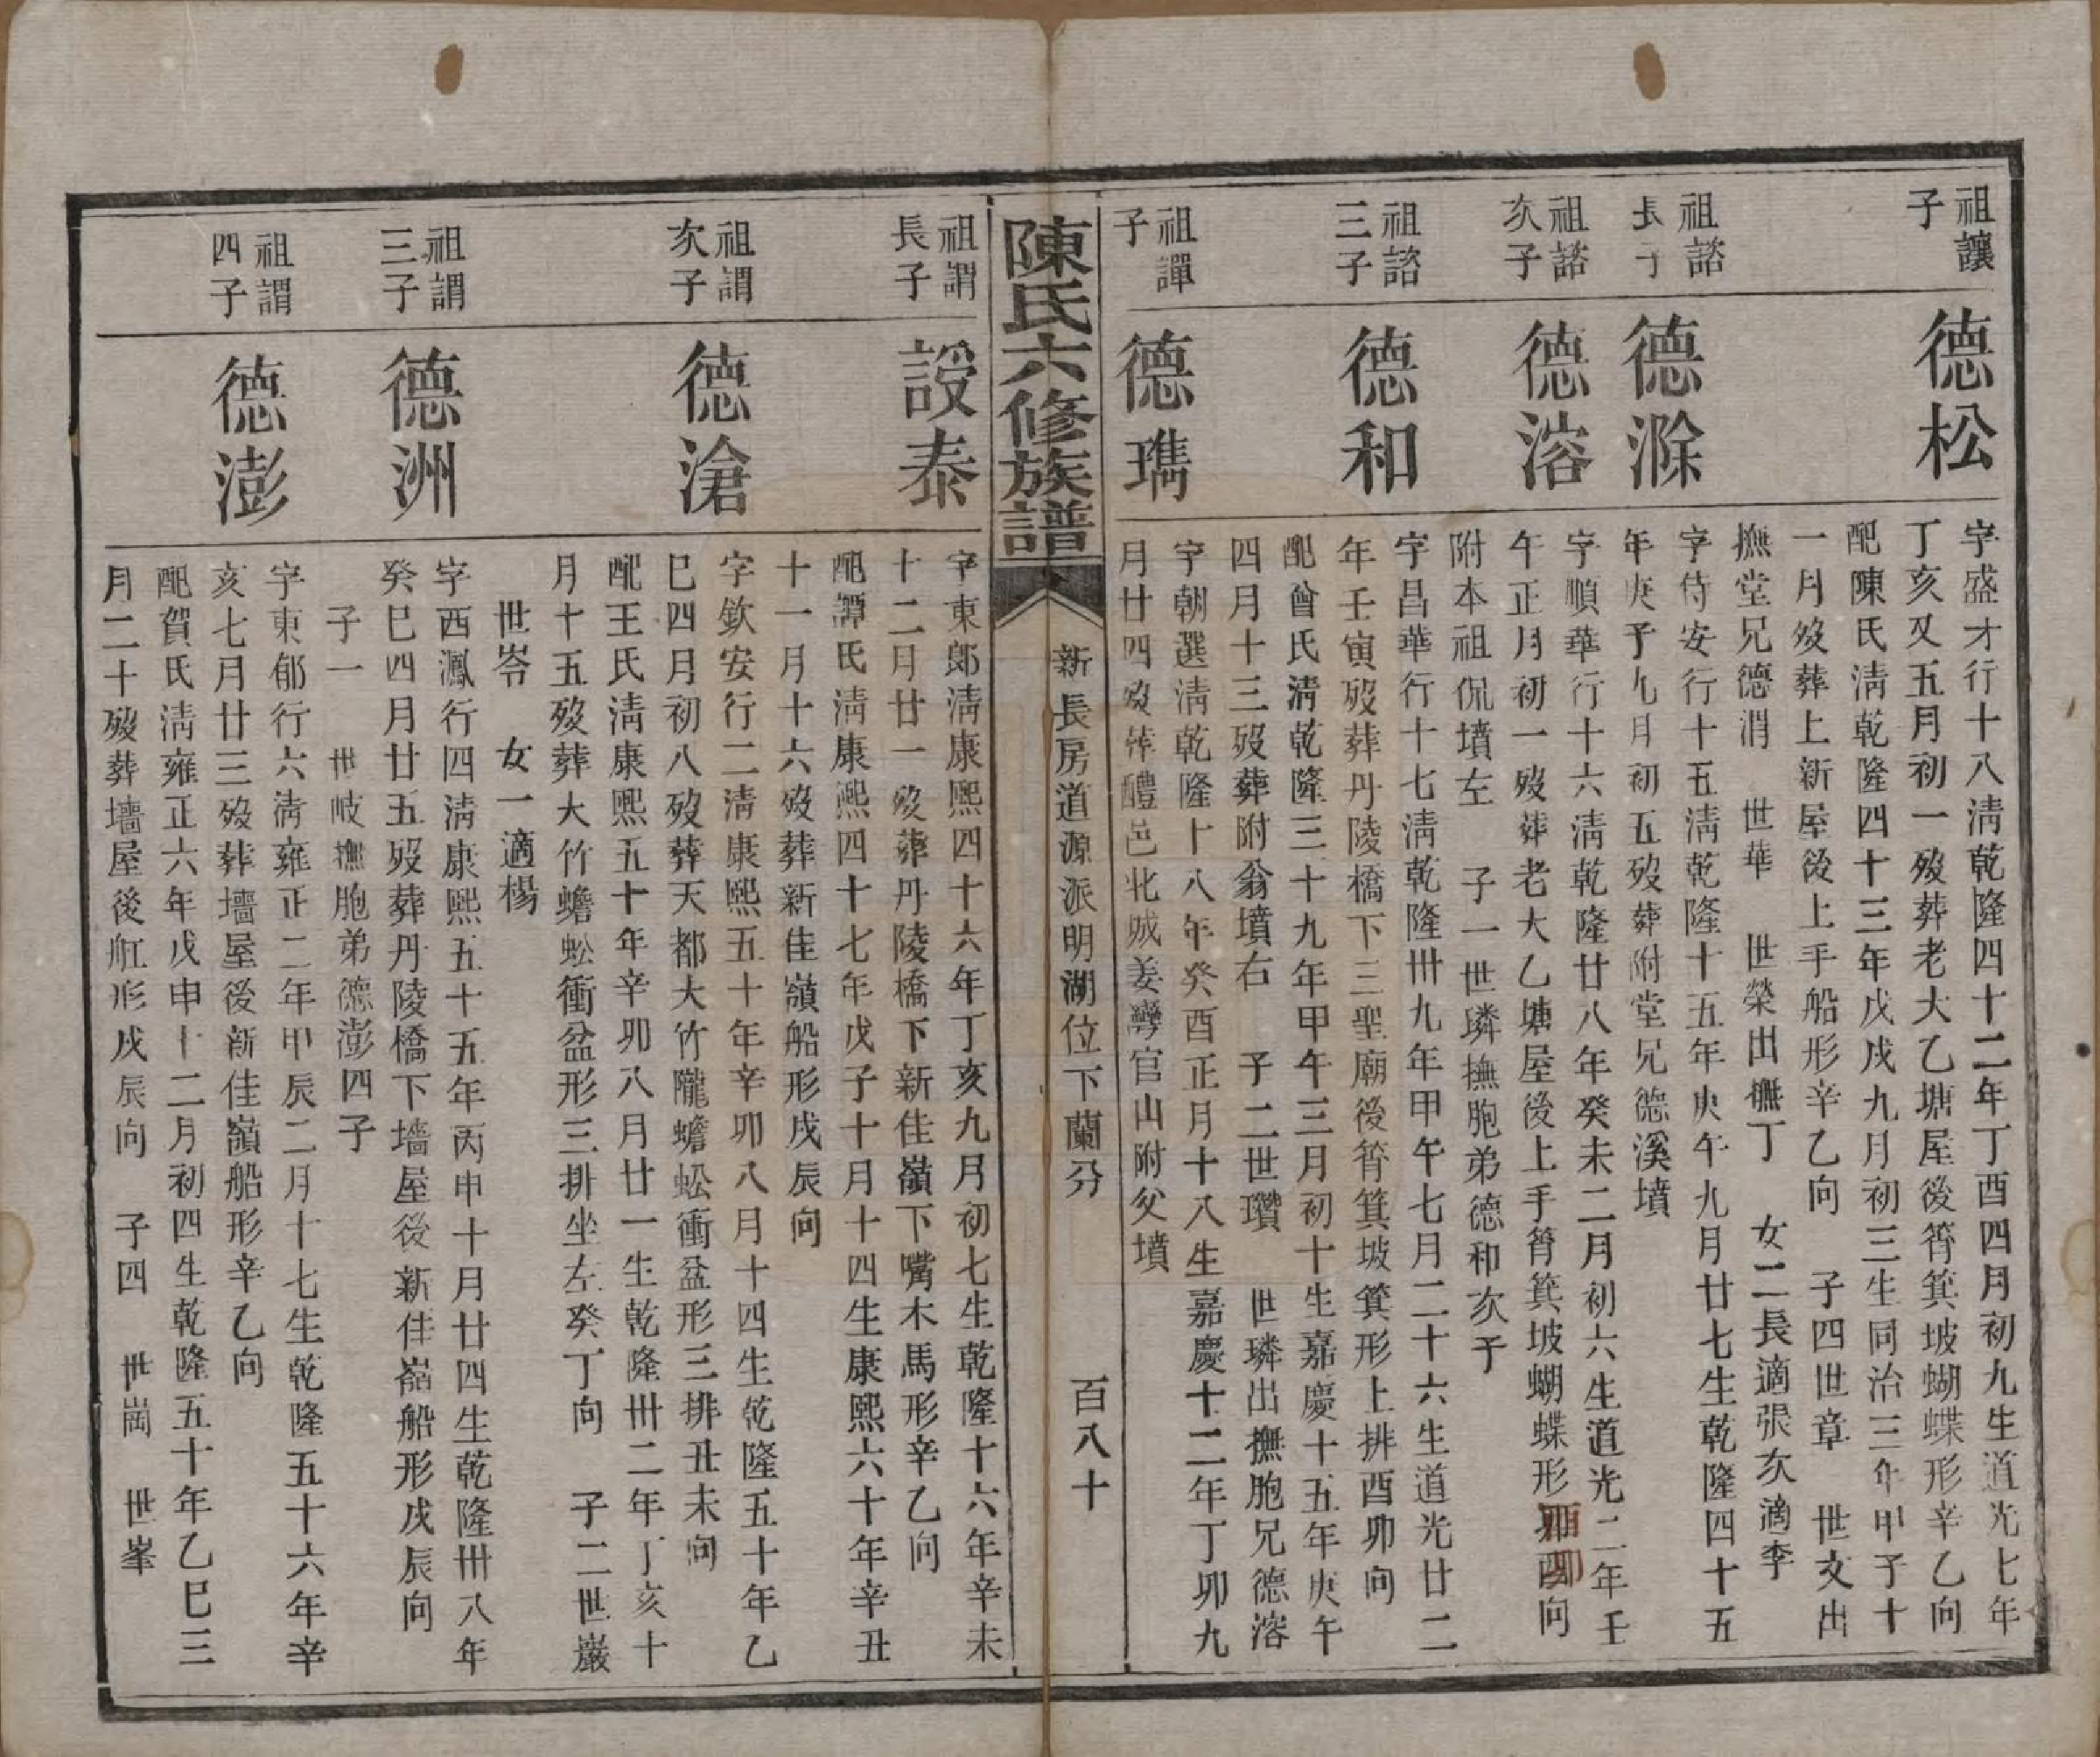 祖讓
子
德松
字盛才行十八淸乾隆四十二年丁酉四月初九生道光七年
丁亥又五月初一歿葬老大乙塘屋後筲箕坡蝴蝶形辛乙向
配陳氏淸乾隆四十三年戊戌九月初三生同治三年甲子十
一月歿葬上新屋後上手船形辛乙向 子四世章 世文出
撫堂兄德渭 世華 世榮出撫丁 女二長適張次適李
祖諮
長子
德滁
字侍安行十五淸乾隆十五年庚午九月廿七生乾隆四十五
年庚子九月初五歿葬附堂兄德溪墳
祖諮
次子
德溶
字順華行十六淸乾隆廿八年癸未二月初六生道光二年壬
午正月初一歿葬老大乙塘屋後上手筲箕坡蝴蝶形酉卯向
附本祖侃墳左 子一世璘撫胞弟德和次子
祖諮
三子
德和
字昌華行十七淸乾隆卅九年甲午七月二十六生道光廿二
年壬寅歿葬丹陵橋下三聖廟後筲箕坡箕形上排酉卯向
配曾氏淸乾隆三十九年甲午三月初十生嘉慶十五年庚午
四月十三歿葬附翁墳右 子二世瓚 世璘出撫胞兄德溶
祖譚
子
德㻽
字朝選淸乾隆十八年癸酉正月十八生嘉慶十二年丁卯九
月廿四歿葬醴邑北城姜灣官山附父墳
陳氏六修族譜
新長房道源派明湖位下蘭分
百八十
祖謂
長子
設泰
字東郞淸康熙四十六年丁亥九月初七生乾隆十六年辛未
十二月廿一歿葬丹陵橋下新佳嶺下嘴木馬形辛乙向
配譚氏淸康熙四十七年戊子十月十四生康熙六十年辛丑
十一月十六歿葬新佳嶺船形戌辰向
祖謂
次子
德滄
字欽安行二淸康熙五十年辛卯八月十四生乾隆五十年乙
巳四月初八歿葬天都大竹隴蟾蚣衝盆形三排丑未向
配王氏淸康熙五十年辛卯八月廿一生乾隆卅二年丁亥十
月十五歿葬大竹蟾蚣衝盆形三排坐左癸丁向 子二世巖
世岺 女一適楊
祖謂
三子
德洲
字西鳳行四淸康熙五十五年丙申十月廿四生乾隆卅八年
癸巳四月廿五歿葬丹陵橋下墻屋後新佳嶺船形戌辰向
子一 世岐撫胞弟德澎四子
祖謂
四子
德澎
字東郁行六淸雍正二年甲辰二月十七生乾隆五十六年辛
亥七月廿三歿葬墻屋後新佳嶺船形辛乙向
配賀氏淸雍正六年戊申十二月初四生乾隆五十年乙巳三
月二十歿葬墻屋後舡形戌辰向 子四 世崗 世峯